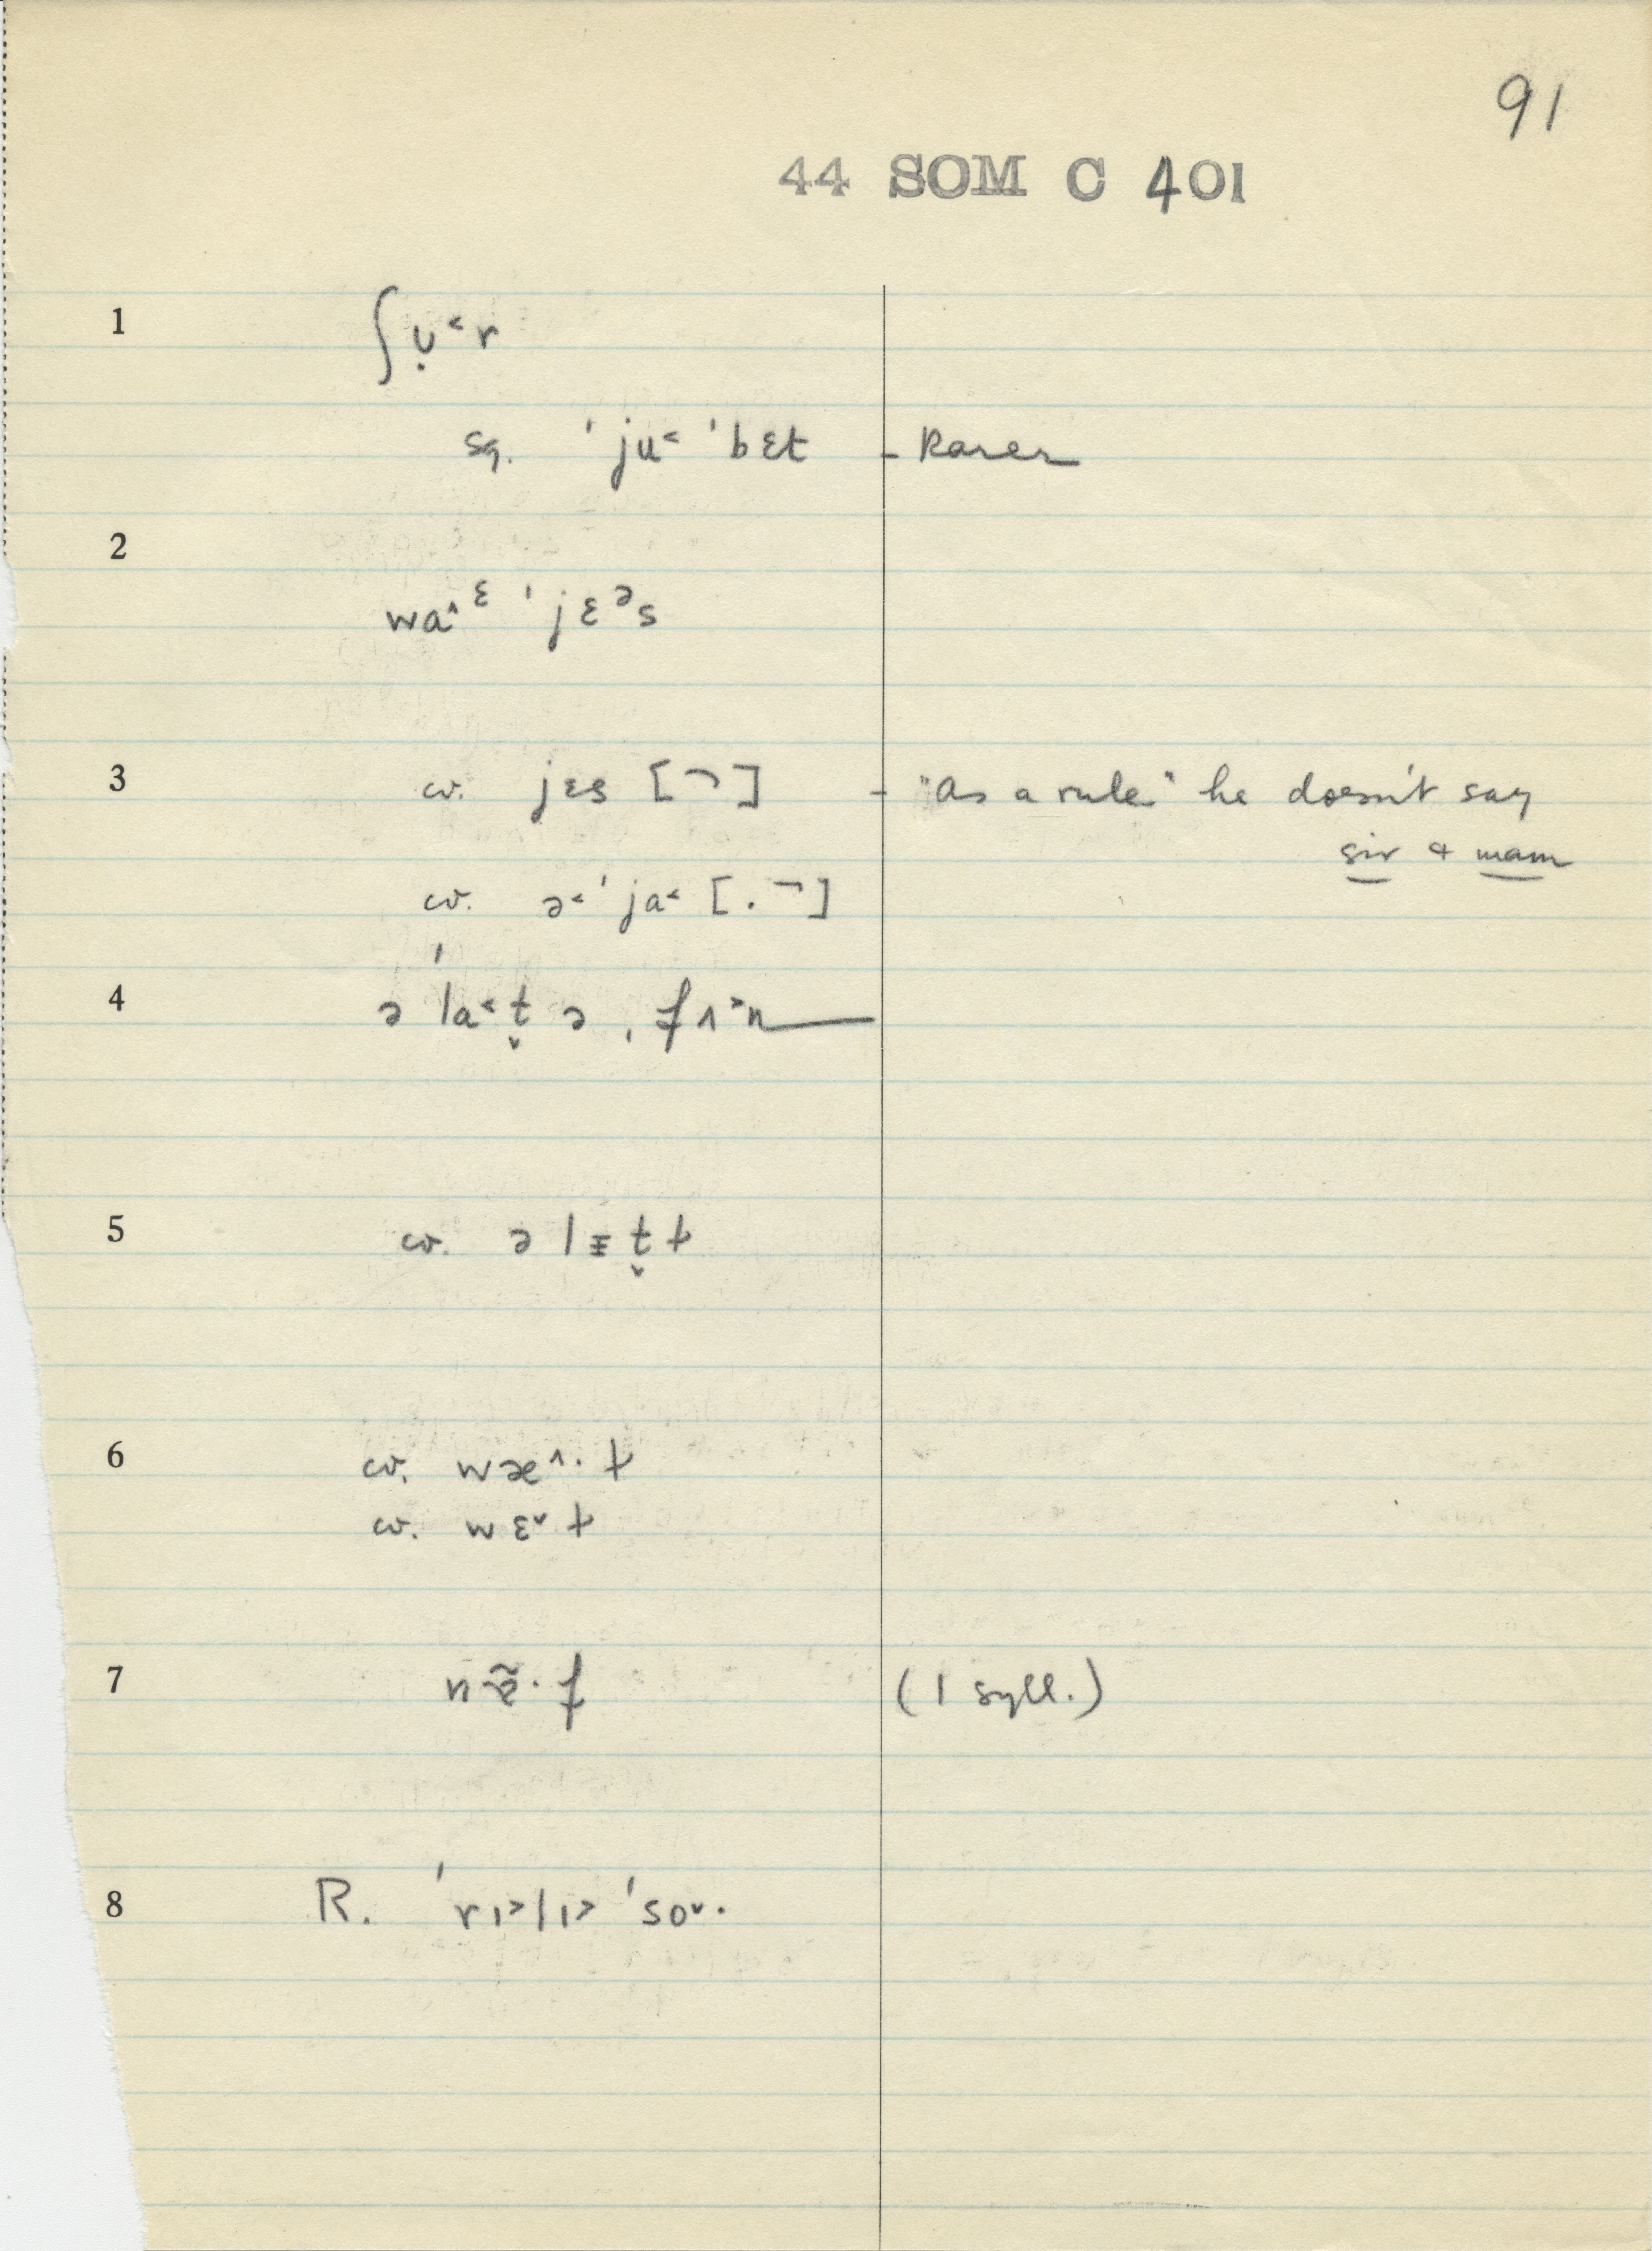 91
44 SOM C 401
1 ʃʊ̣˂r
sg. ˈju˂ ˈbɛt - Rarer
2
wa^ᵋ ˈjɛᵊs
3 cv. jɛs [¬] - "As a rule" he doesn't say
sir & mam
cv. ə˂ˈja˂ [.¬]
4 ə ˈla˂t̬ ə ˌfʌ˃n—
5 cv. ə lɪ̵t̬ ɫ
6 cv. wæ^· ɫ
cv. wɛ˅ ɫ
7 (1 syll.)
8 R. ˈrɪ˃lɪ˃ ˈso˅·